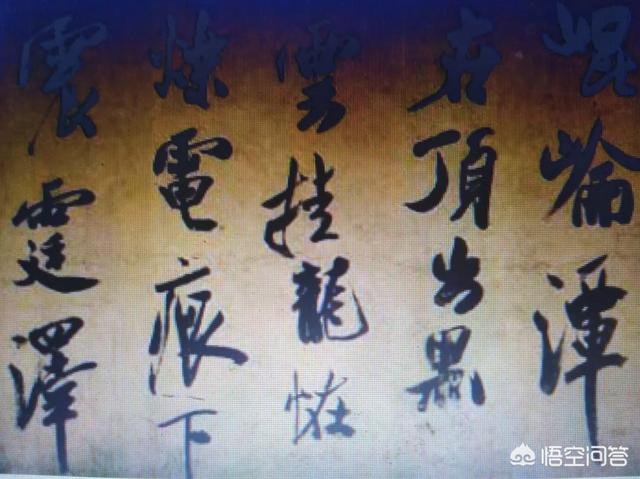 崐崘潭
在頂出黑
雲挂龍恠
爍電痕下
震霆澤
悟空问答